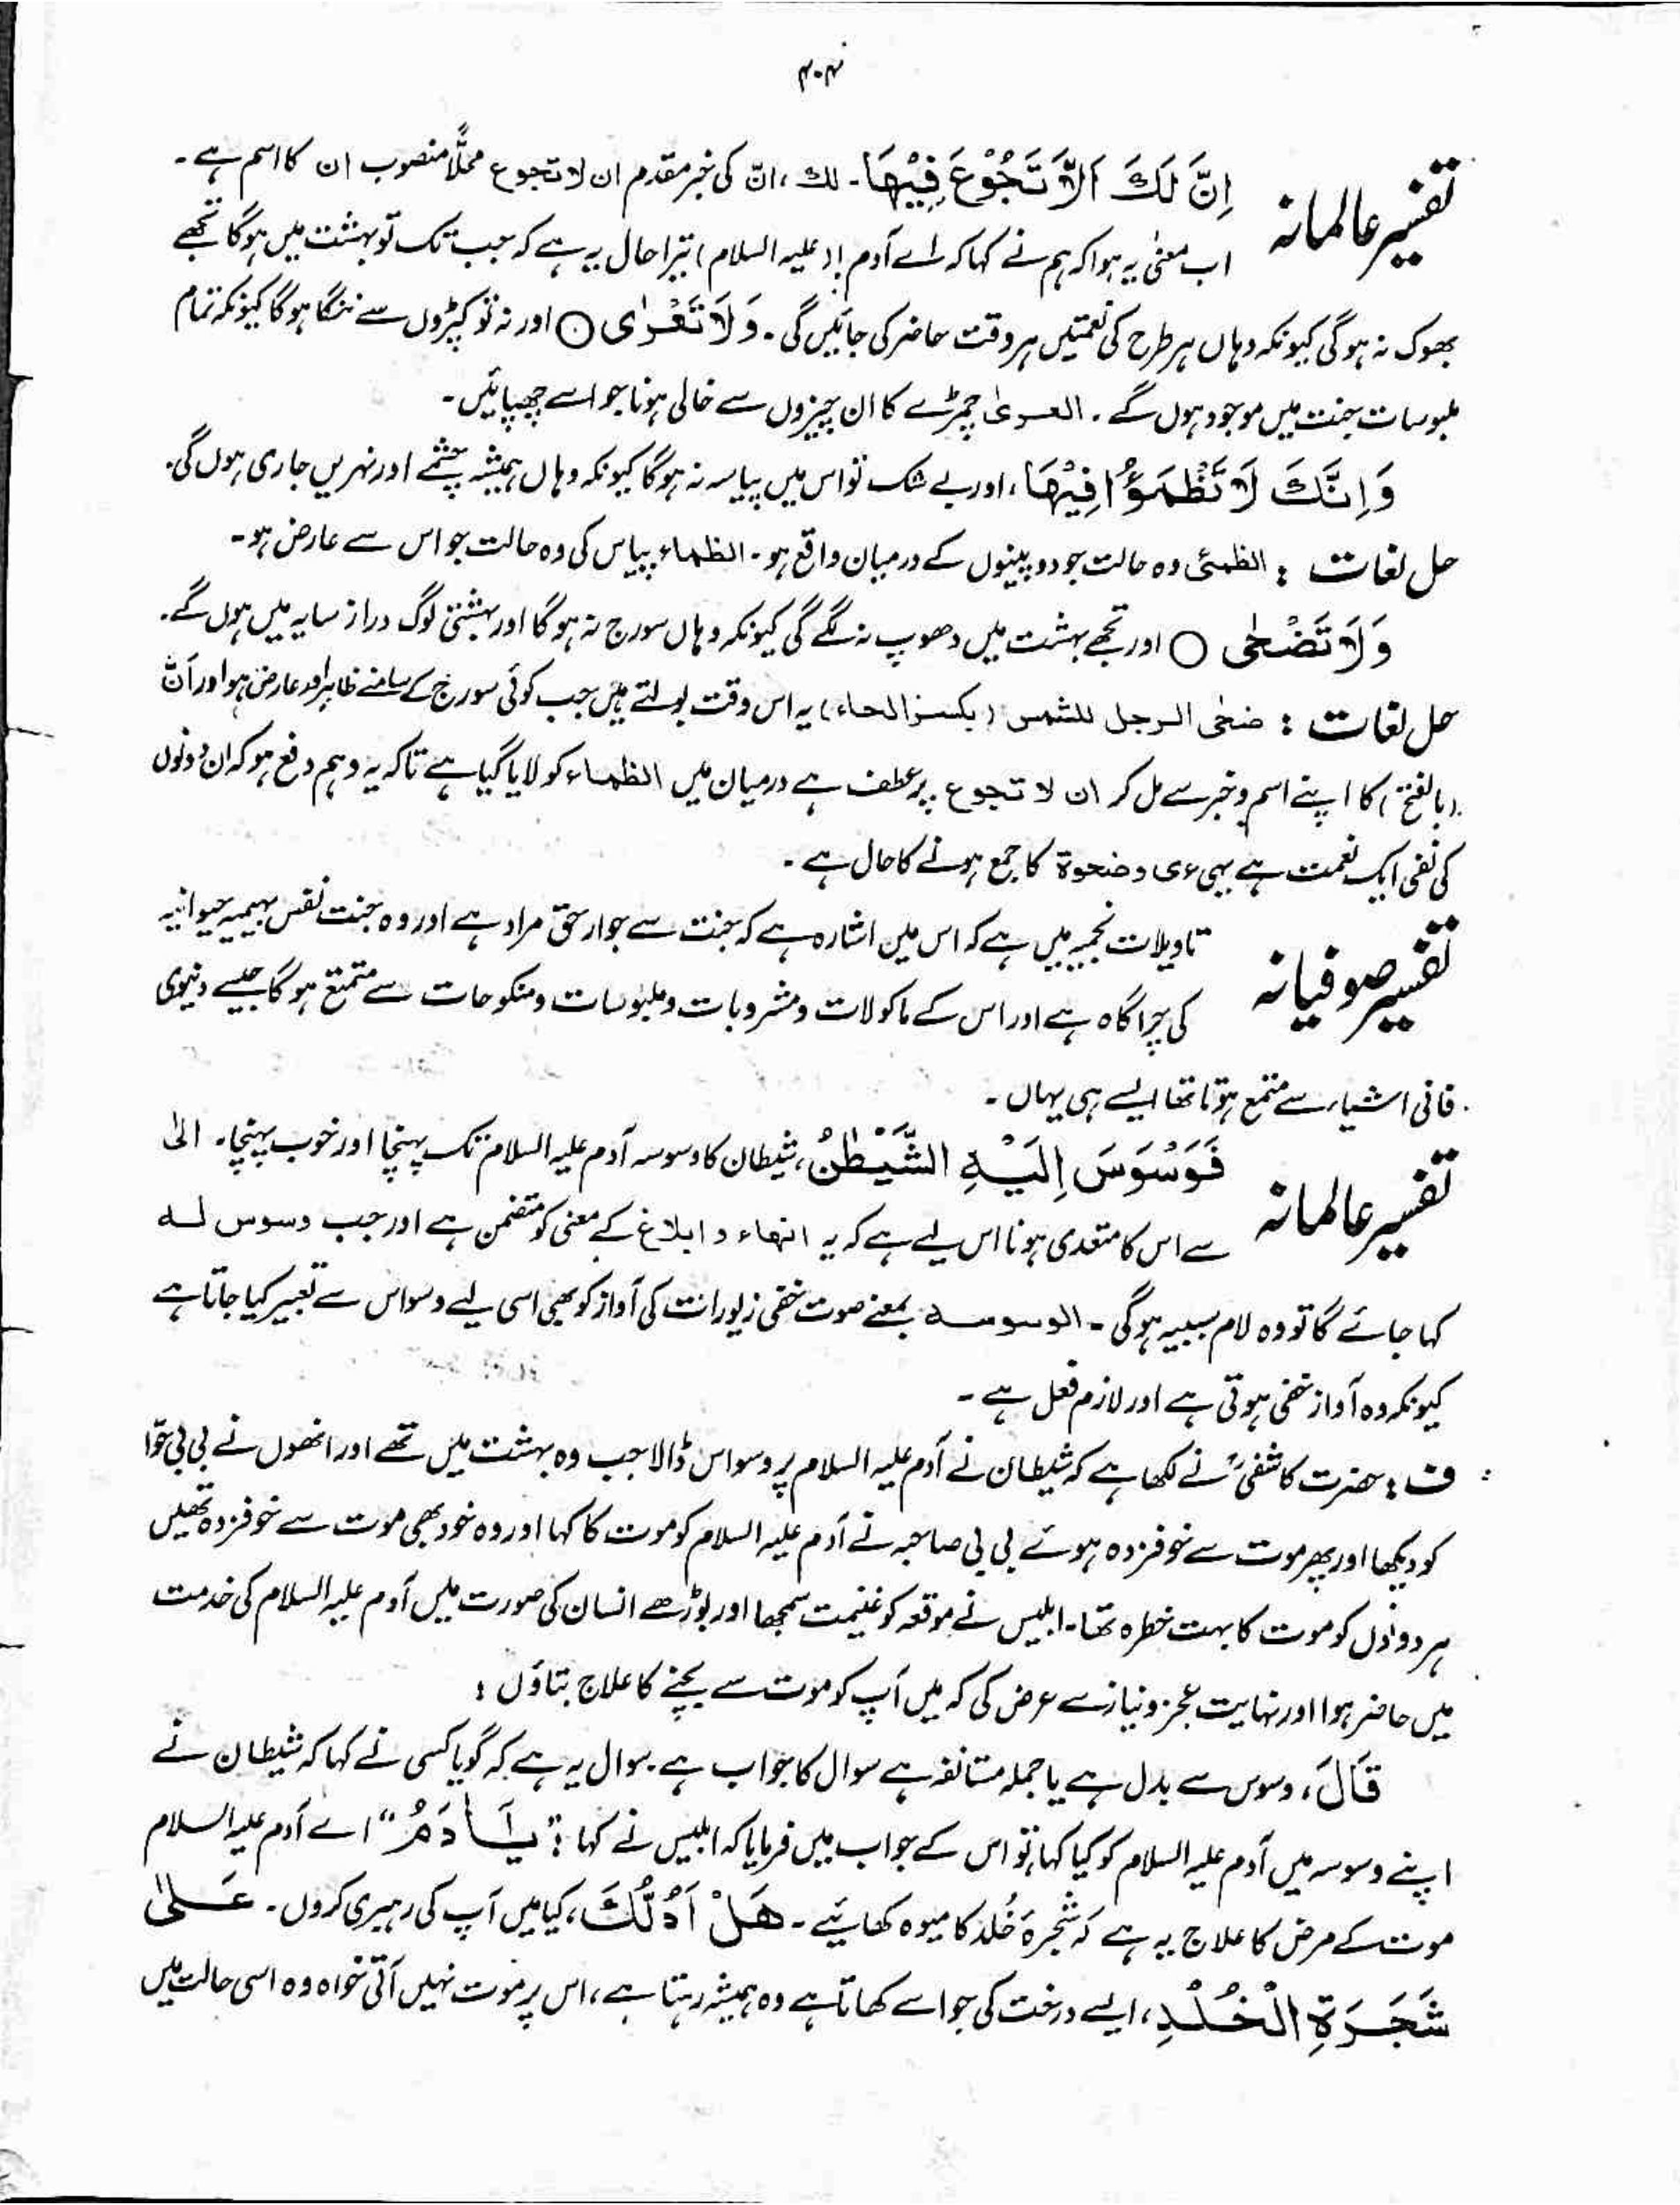 ۴۰۴
تفسیر عالمانہ اِنَّ لَكَ اَلَّا تَجُوْعَ فِيْهَا۔ لك ، انّ کی خبر مقدم ان لا تجوع محلًّا منصوب ان کا اسم ہے۔
اب معنیٰ یہ ہوا کہ ہم نے کہا کہ اے آدم! (علیہ السلام) تیرا حال یہ ہے کہ جب تک تو بہشت میں ہوگا تجھے
بھوک نہ ہوگی کیونکہ وہاں ہر طرح کی نعمتیں ہر وقت حاضر کی جائیں گی۔ وَلَا تَعْرٰى ○ اور نہ تو کپڑوں سے ننگا ہوگا کیونکہ تمام
ملبوسات جنت میں موجود ہوں گے۔ العریٰ چمڑے کا ان چیزوں سے خالی ہونا جو اسے چھپائیں۔
وَاِنَّكَ لَا تَظْمَؤُا فِيْهَا، اور بے شک تو اس میں پیاسہ نہ ہوگا کیونکہ وہاں ہمیشہ چشمے اور نہریں جاری ہوں گی۔
حل لغات : الظمئ وہ حالت جو دو پینوں کے درمیان واقع ہو۔ الظماء پیاس کی وہ حالت جو اس سے عارض ہو۔
وَلَا تَضْحٰى ○ اور تجھے بہشت میں دھوپ نہ لگے گی کیونکہ وہاں سورج نہ ہوگا اور بہشتی لوگ دراز سایہ میں ہوں گے۔
حل لغات : ضحی الرجل للشمس (بکسر الحاء) یہ اس وقت بولتے ہیں جب کوئی سورج کے سامنے ظاہر اور عارض ہو اور اَنَّ
(بالفتح) کا اپنے اسم و خبر سے مل کر ان لا تجوع پر عطف ہے درمیان میں الظماء کو لایا گیا ہے تاکہ یہ وہم دفع ہو کہ ان دونوں
کی نفی ایک نعمت ہے یہی عری و ضحوۃ کا جمع ہونے کا حال ہے۔
تفسیر صوفیانہ تاویلات نجمیہ میں ہے کہ اس میں اشارہ ہے کہ جنت سے جوار حق مراد ہے اور وہ جنت نفس بہیمیہ حیوانیہ
کی چراگاہ ہے اور اس کے ماکولات و مشروبات و ملبوسات و منکوحات سے متمتع ہوگا جیسے دنیوی
فانی اشیاء سے متمتع ہوتا تھا ایسے ہی یہاں۔
تفسیر عالمانہ فَوَسْوَسَ اِلَيْهِ الشَّيْطٰنُ، شیطان کا وسوسہ آدم علیہ السلام تک پہنچا اور خوب پہنچا۔ الیٰ
سے اس کا متعدی ہونا اس لیے ہے کہ یہ انہاء و ابلاغ کے معنی کو متضمن ہے اور جب وسوس لہ
کہا جائے گا تو وہ لام سببیہ ہوگی۔ الوسوسہ بمعنے صوت خفی زیورات کی آواز کو بھی اسی لیے وسواس سے تعبیر کیا جاتا ہے
کیونکہ وہ آواز خفی ہوتی ہے اور لازم فعل ہے۔
ف : حضرت کاشفیؒ نے لکھا ہے کہ شیطان نے آدم علیہ السلام پر وسواس ڈالا جب وہ بہشت میں تھے اور انھوں نے بی بی حوّا
کو دیکھا اور پھر موت سے خوفزدہ ہوئے بی بی صاحبہ نے آدم علیہ السلام کو موت کا کہا اور وہ خود بھی موت سے خوفزدہ تھیں
ہر دونوں کو موت کا بہت خطرہ تھا۔ ابلیس نے موقعہ کو غنیمت سمجھا اور بوڑھے انسان کی صورت میں آدم علیہ السلام کی خدمت
میں حاضر ہوا اور نہایت عجز و نیاز سے عرض کی کہ میں آپ کو موت سے بچنے کا علاج بتاؤں :
قَالَ، وسوس سے بدل ہے یا جملہ مستانفہ ہے سوال کا جواب ہے۔ سوال یہ ہے کہ گویا کسی نے کہا کہ شیطان نے
اپنے وسوسہ میں آدم علیہ السلام کو کیا کہا، تو اس کے جواب میں فرمایا کہ ابلیس نے کہا : يٰۤاٰدَمُ" اے آدم علیہ السلام
موت کے مرض کا علاج یہ ہے کہ شجرۂ خُلد کا میوہ کھائیے۔ هَلْ اَدُلُّكَ، کیا میں آپ کی رہبری کروں۔ عَلٰى
شَجَرَةِ الْخُلْدِ، ایسے درخت کی جو اسے کھاتا ہے وہ ہمیشہ رہتا ہے، اس پر موت نہیں آتی خواہ وہ اسی حالت میں